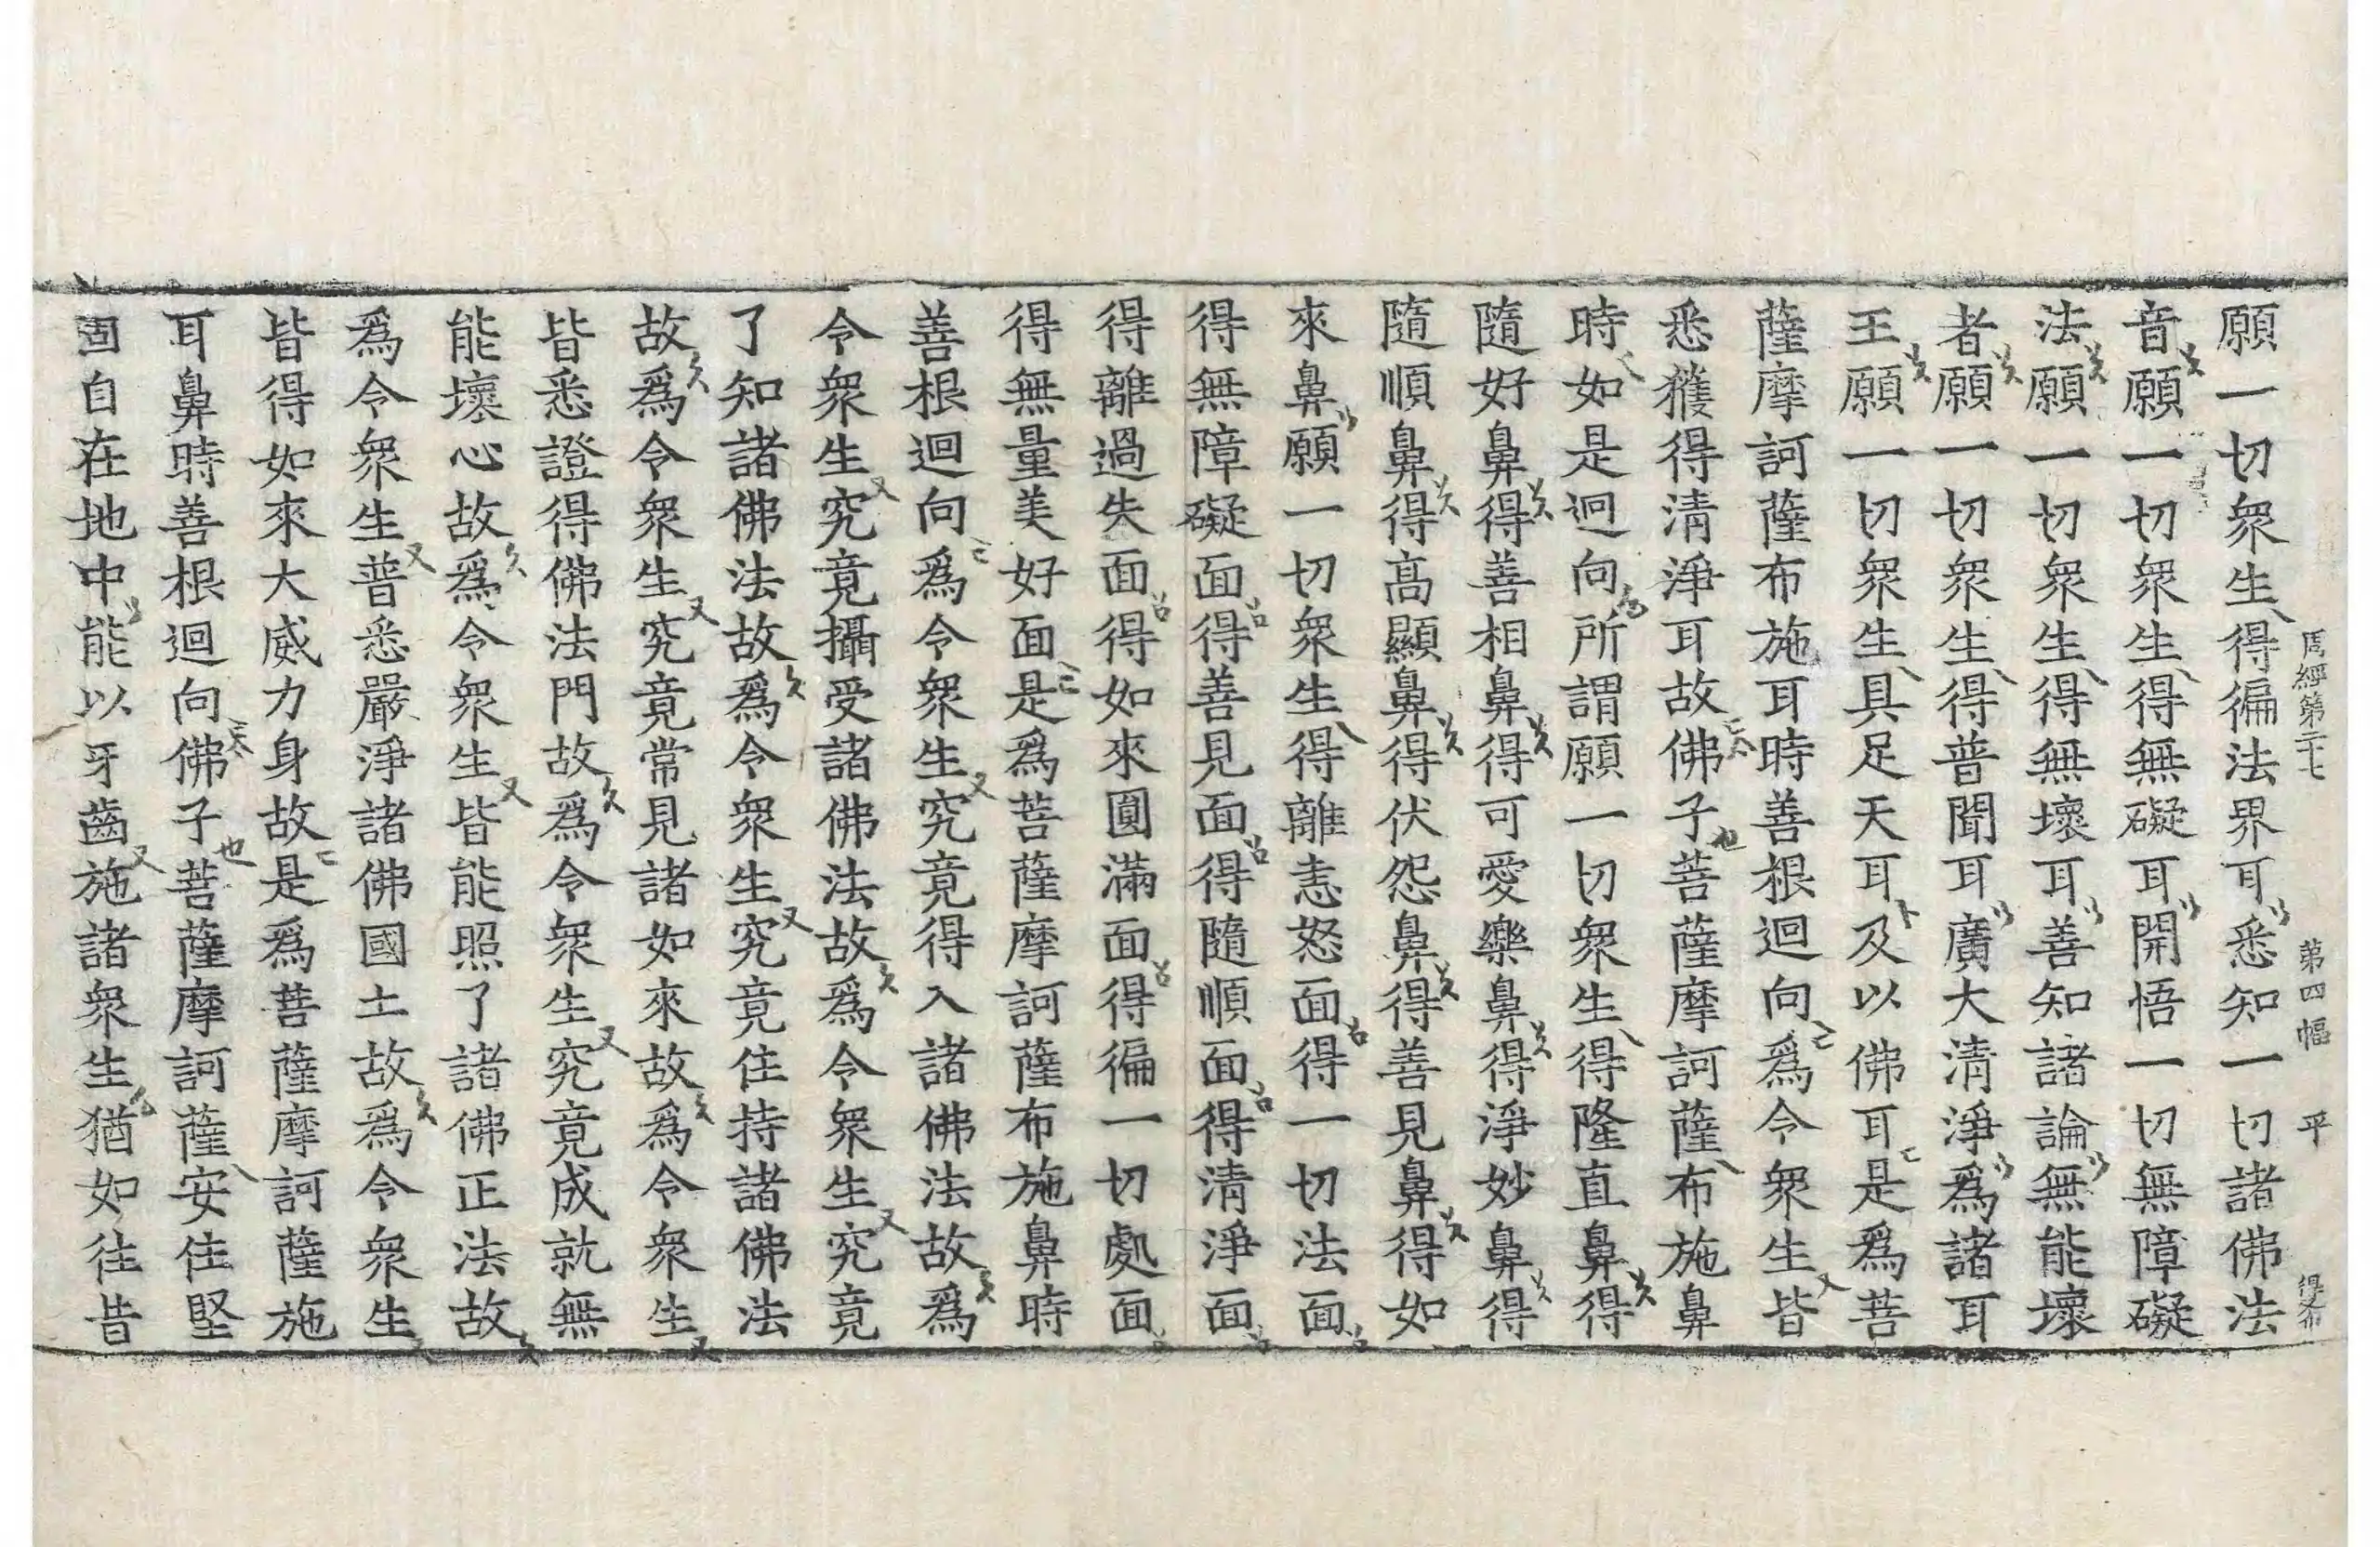 周經第二十七 第四幅 平 得布
願一切衆生得徧法界耳悉知一切諸佛法
音願一切衆生得無礙耳開悟一切無障礙
法願一切衆生得無壞耳善知諸論無能壞
者願一切衆生得普聞耳廣大清淨爲諸耳
王願一切衆生具足天耳及以佛耳是爲菩
薩摩訶薩布施耳時善根迴向爲令衆生皆
悉獲得清淨耳故佛子菩薩摩訶薩布施鼻
時如是迴向所謂願一切衆生得隆直鼻得
隨好鼻得善相鼻得可愛樂鼻得淨妙鼻得
隨順鼻得高顯鼻得伏怨鼻得善見鼻得如
來鼻願一切衆生得離恚怒面得一切法面
得無障礙面得善見面得隨順面得清淨面
得離過失面得如來圓滿面得徧一切處面
得無量美好面是爲菩薩摩訶薩布施鼻時
善根迴向爲令衆生究竟得入諸佛法故爲
令衆生究竟攝受諸佛法故爲令衆生究竟
了知諸佛法故爲令衆生究竟住持諸佛法
故爲令衆生究竟常見諸如來故爲令衆生
皆悉證得佛法門故爲令衆生究竟成就無
能壞心故爲令衆生皆能照了諸佛正法故
爲令衆生普悉嚴淨諸佛國土故爲令衆生
皆得如來大威力身故是爲菩薩摩訶薩施
耳鼻時善根迴向佛子菩薩摩訶薩安住堅
固自在地中能以牙齒施諸衆生猶如往昔